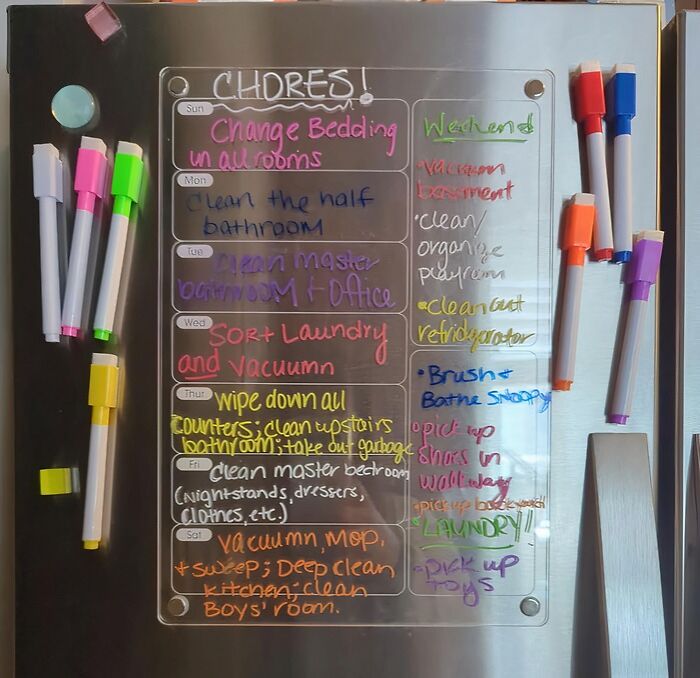 CHORES!
Sun
Change Bedding
in all rooms
Mon
Clean the half
bathroom
Tue
Clean master
bathroom + Office
Wed
Sort Laundry
and vacuumn
Thur
wipe down all
counters; clean upstairs
bathroom; take out garbage
Fri
clean master bedroom
(nightstands, dressers,
clothes, etc.)
Sat
vacuumn, mop,
+ sweep; Deep clean
kitchen; clean
Boys' room.
Weekend
•vacuumn
basement
•clean/
organize
playroom
•clean out
refridgerator
•Brush +
Bathe Snoopy
•pick up
shoes in
walkway
•pick up back yard
•"LAUNDRY"
•pick up
toys